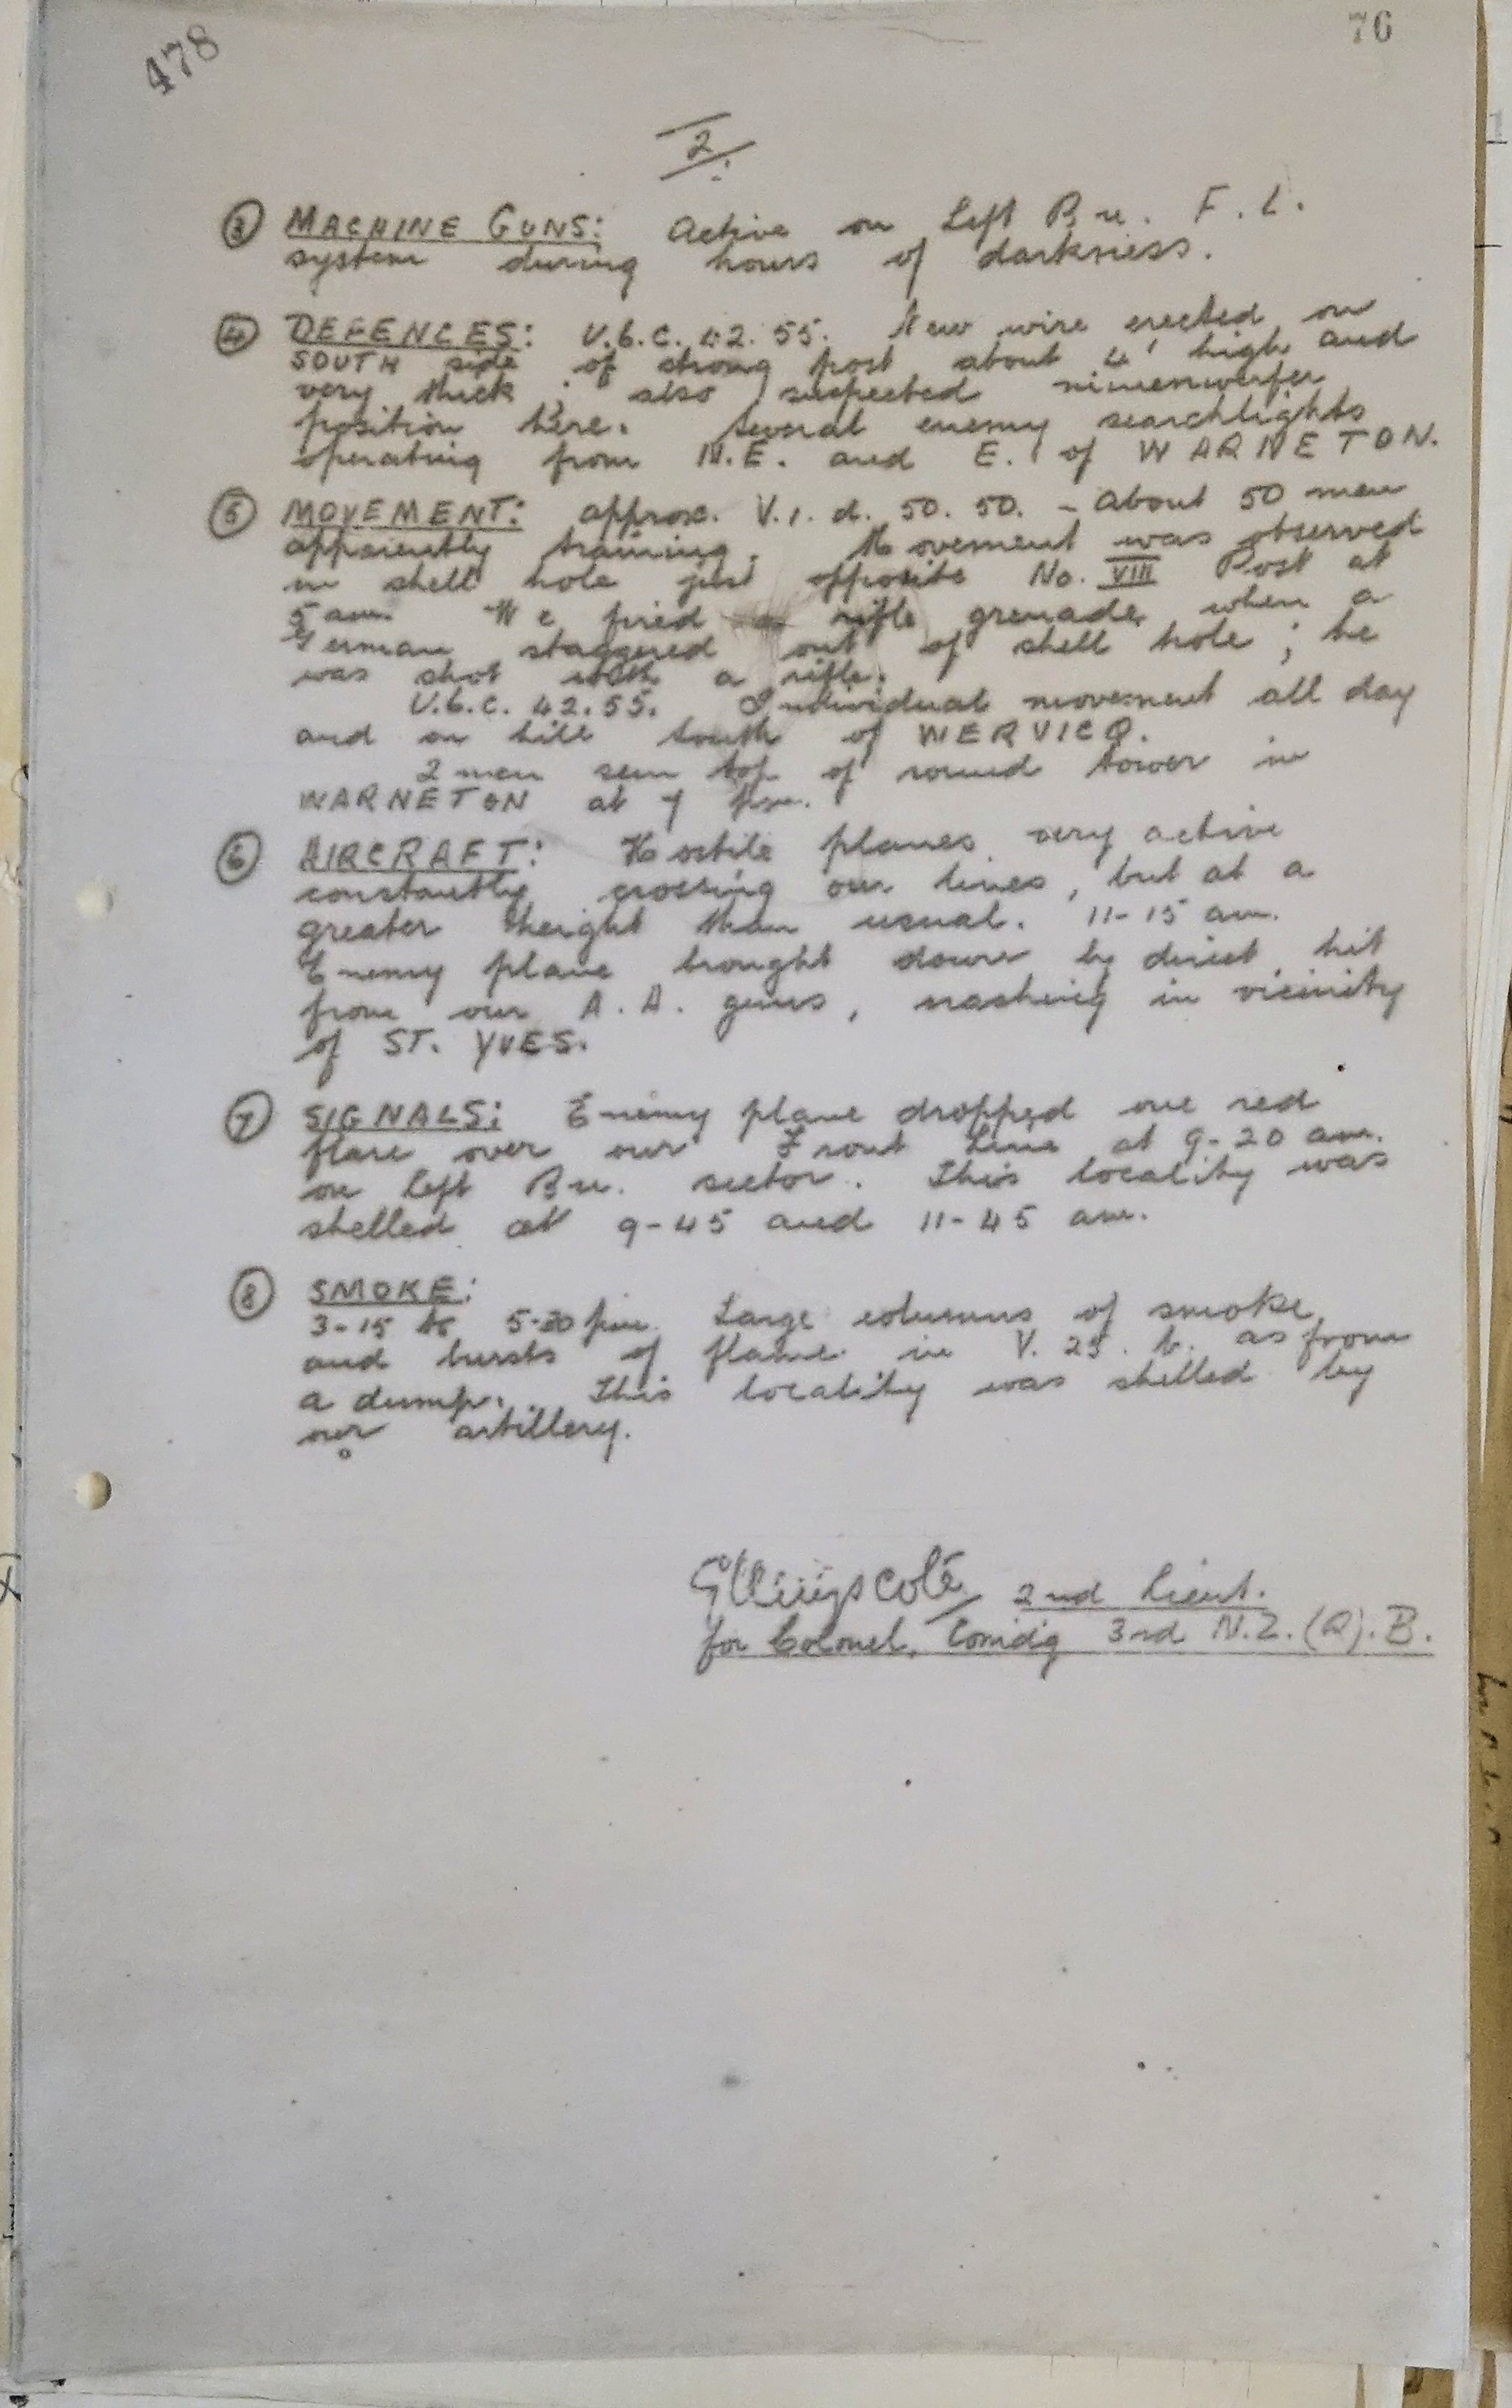 478
76
2.
③ MACHINE GUNS: Active on Left Bn. F. L.
system during hours of darkness.
④ DEFENCES: U.6.c. 42.55. New wire erected on
SOUTH side of strong post about 4' high and
very thick; also suspected minenwerfer
position here. Several enemy searchlights
operating from N.E. and E. of WARNETON.
⑤ MOVEMENT: approx. V.1.d. 50.50. - About 50 men
apparently training. Movement was observed
in shell hole just opposite No. VIII Post at
5 am. We fired a rifle grenade when a
German staggered out of shell hole; he
was shot with a rifle.
U.6.c. 42.55. Individual movement all day
and on hill South of WERVICQ.
2 men seen top of round tower in
WARNETON at 7 pm.
⑥ AIRCRAFT: Hostile planes very active
constantly crossing our lines, but at a
greater height than usual. 11-15 am.
Enemy plane brought down by direct hit
from our A.A. guns, crashing in vicinity
of ST. YVES.
⑦ SIGNALS: Enemy plane dropped one red
flare over our Front Line at 9-20 am.
on Left Bn. sector. This locality was
shelled at 9-45 and 11-45 am.
⑧ SMOKE:
3-15 to 5-30 pm. Large columns of smoke
and bursts of flame in V. 25. b. as from
a dump. This locality was shelled by
our artillery.
2nd Lieut.
for Colonel, Comdg 3rd N.Z.(R).B.